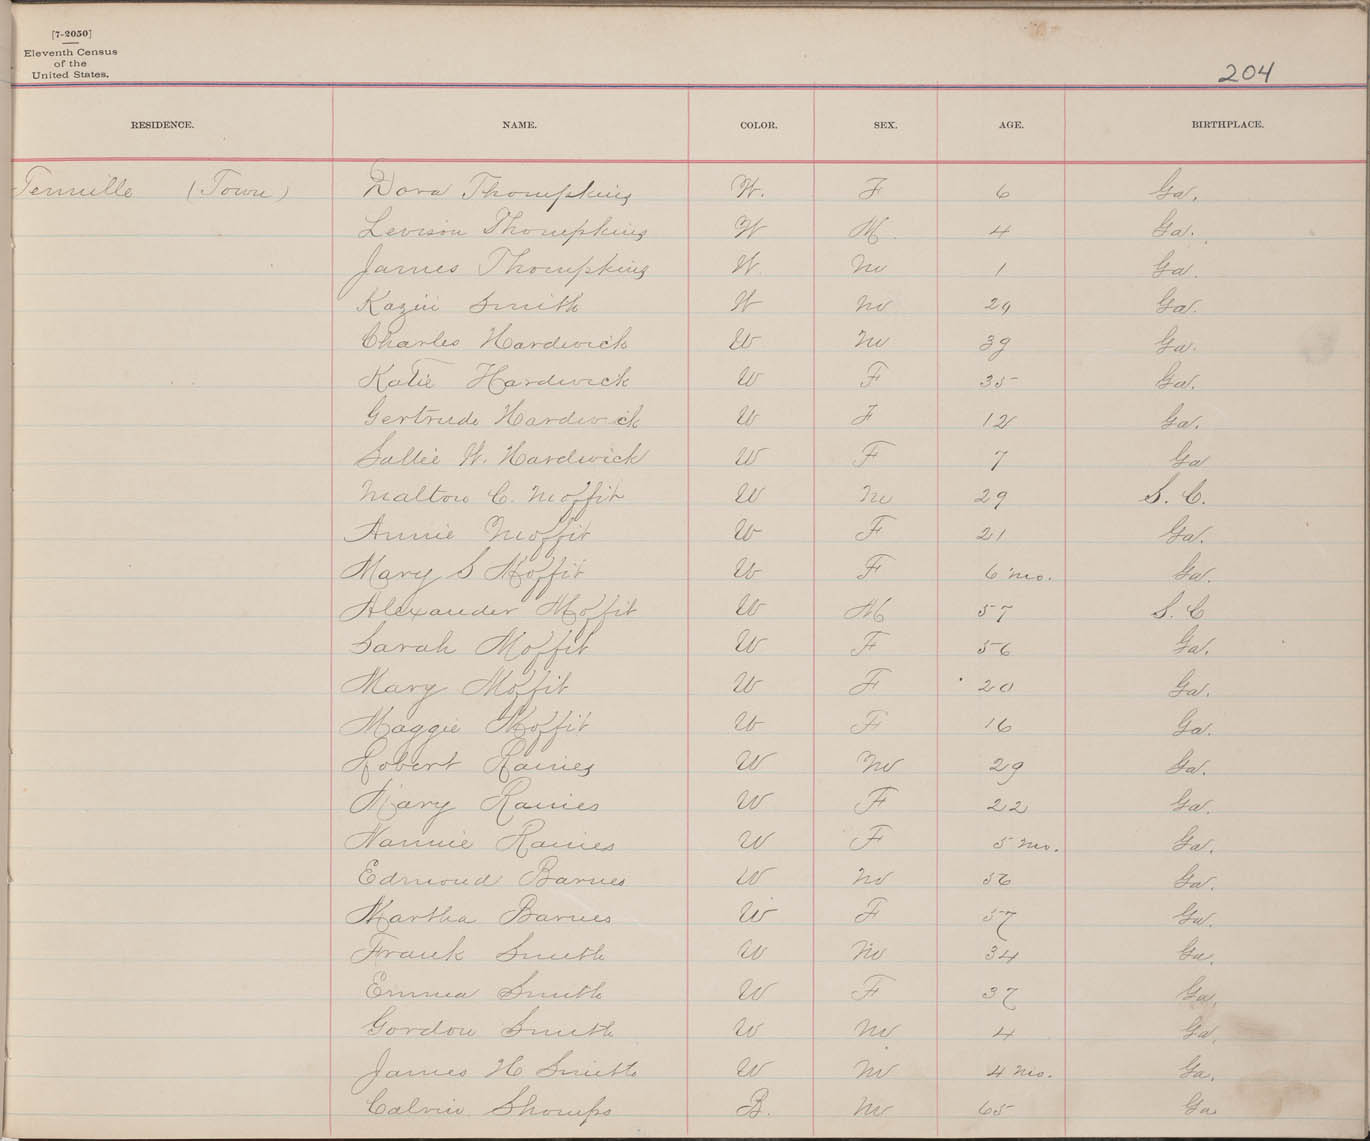 [7-2050]
Eleventh Census
of the
United States.
204
RESIDENCE. NAME. COLOR. SEX. AGE. BIRTHPLACE.
Tennille (Town) Dora Thompkins W. F 6 Ga.
Levison Thompkins W M 4 Ga.
James Thompkins W M 1 Ga.
Smith W M 29 Ga.
Charles Hardwick W M 39 Ga.
Katie Hardwick W F 35 Ga.
Gertrude Hardwick W F 12 Ga.
Sallie W. Hardwick W F 7 Ga
Malton C. Moffit W M 29 S. C.
Annie Moffit W F 21 Ga.
Mary S Moffit W F 6 mo. Ga.
Alexander Moffit W M 57 S. C
Sarah Moffit W F 56 Ga.
Mary Moffit W F 20 Ga.
Maggie Moffit W F 16 Ga.
Robert Raines W M 29 Ga.
Mary Raines W F 22 Ga.
Nannie Raines W F 5 mo. Ga.
Edmond Barnes W M 56 Ga.
Martha Barnes W F 57 Ga.
Frank Smith W M 34 Ga.
Emma Smith W F 37 Ga.
Gordon Smith W M 4 Ga.
James H Smith W M 4 mo. Ga.
Calvin Shoumps B. M 65 Ga